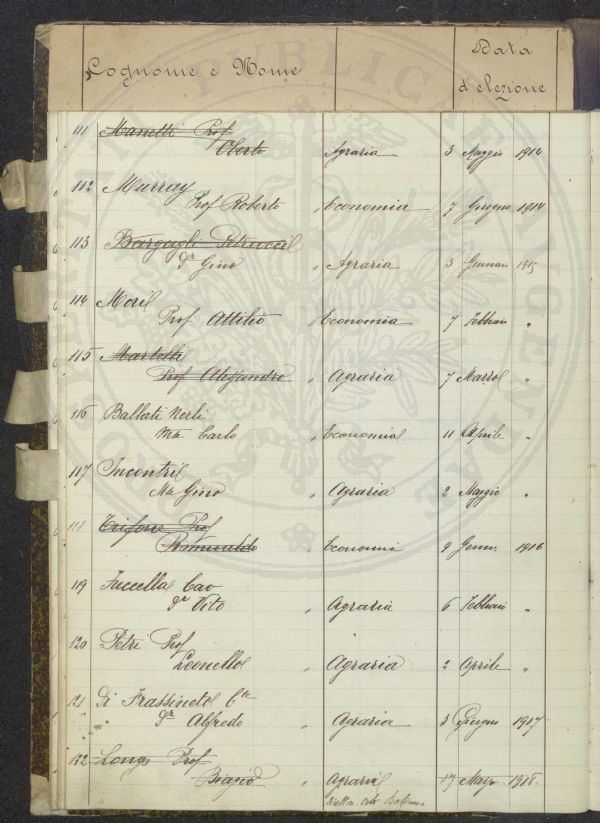 Cognome e Nome Data
d'elezione
111 Manetti Prof
Oberto Agraria 3 Maggio 1914
112 Murray
Prof Roberto " Economia 7 Giugno 1914
113 Bargagli Petrucci
Dr Gino " Agraria 3 Gennaio 1915
114 Mori
Prof. Attilio Economia 7 Febbraio "
115 Martelli
Prof Alessandro " Agraria 7 Marzo "
116 Ballati Nerli
Mse Carlo " Economia 11 Aprile "
117 Incontri
Mse Gino " Agraria 2 Maggio "
118 Trifone Prof
Romualdo " Economia 9 Genn. 1916
119 Fuccella Cav
Dr Vito " Agraria 6 Febbraio "
120 Petri Prof
Leonello " Agraria 2 Aprile "
121 Di Frassineto Cte
Dr Alfredo " Agraria 3 Giugno 1917
122 Longo Prof
Biagio " Agraria 17 Marzo 1918.
Direttore Orto